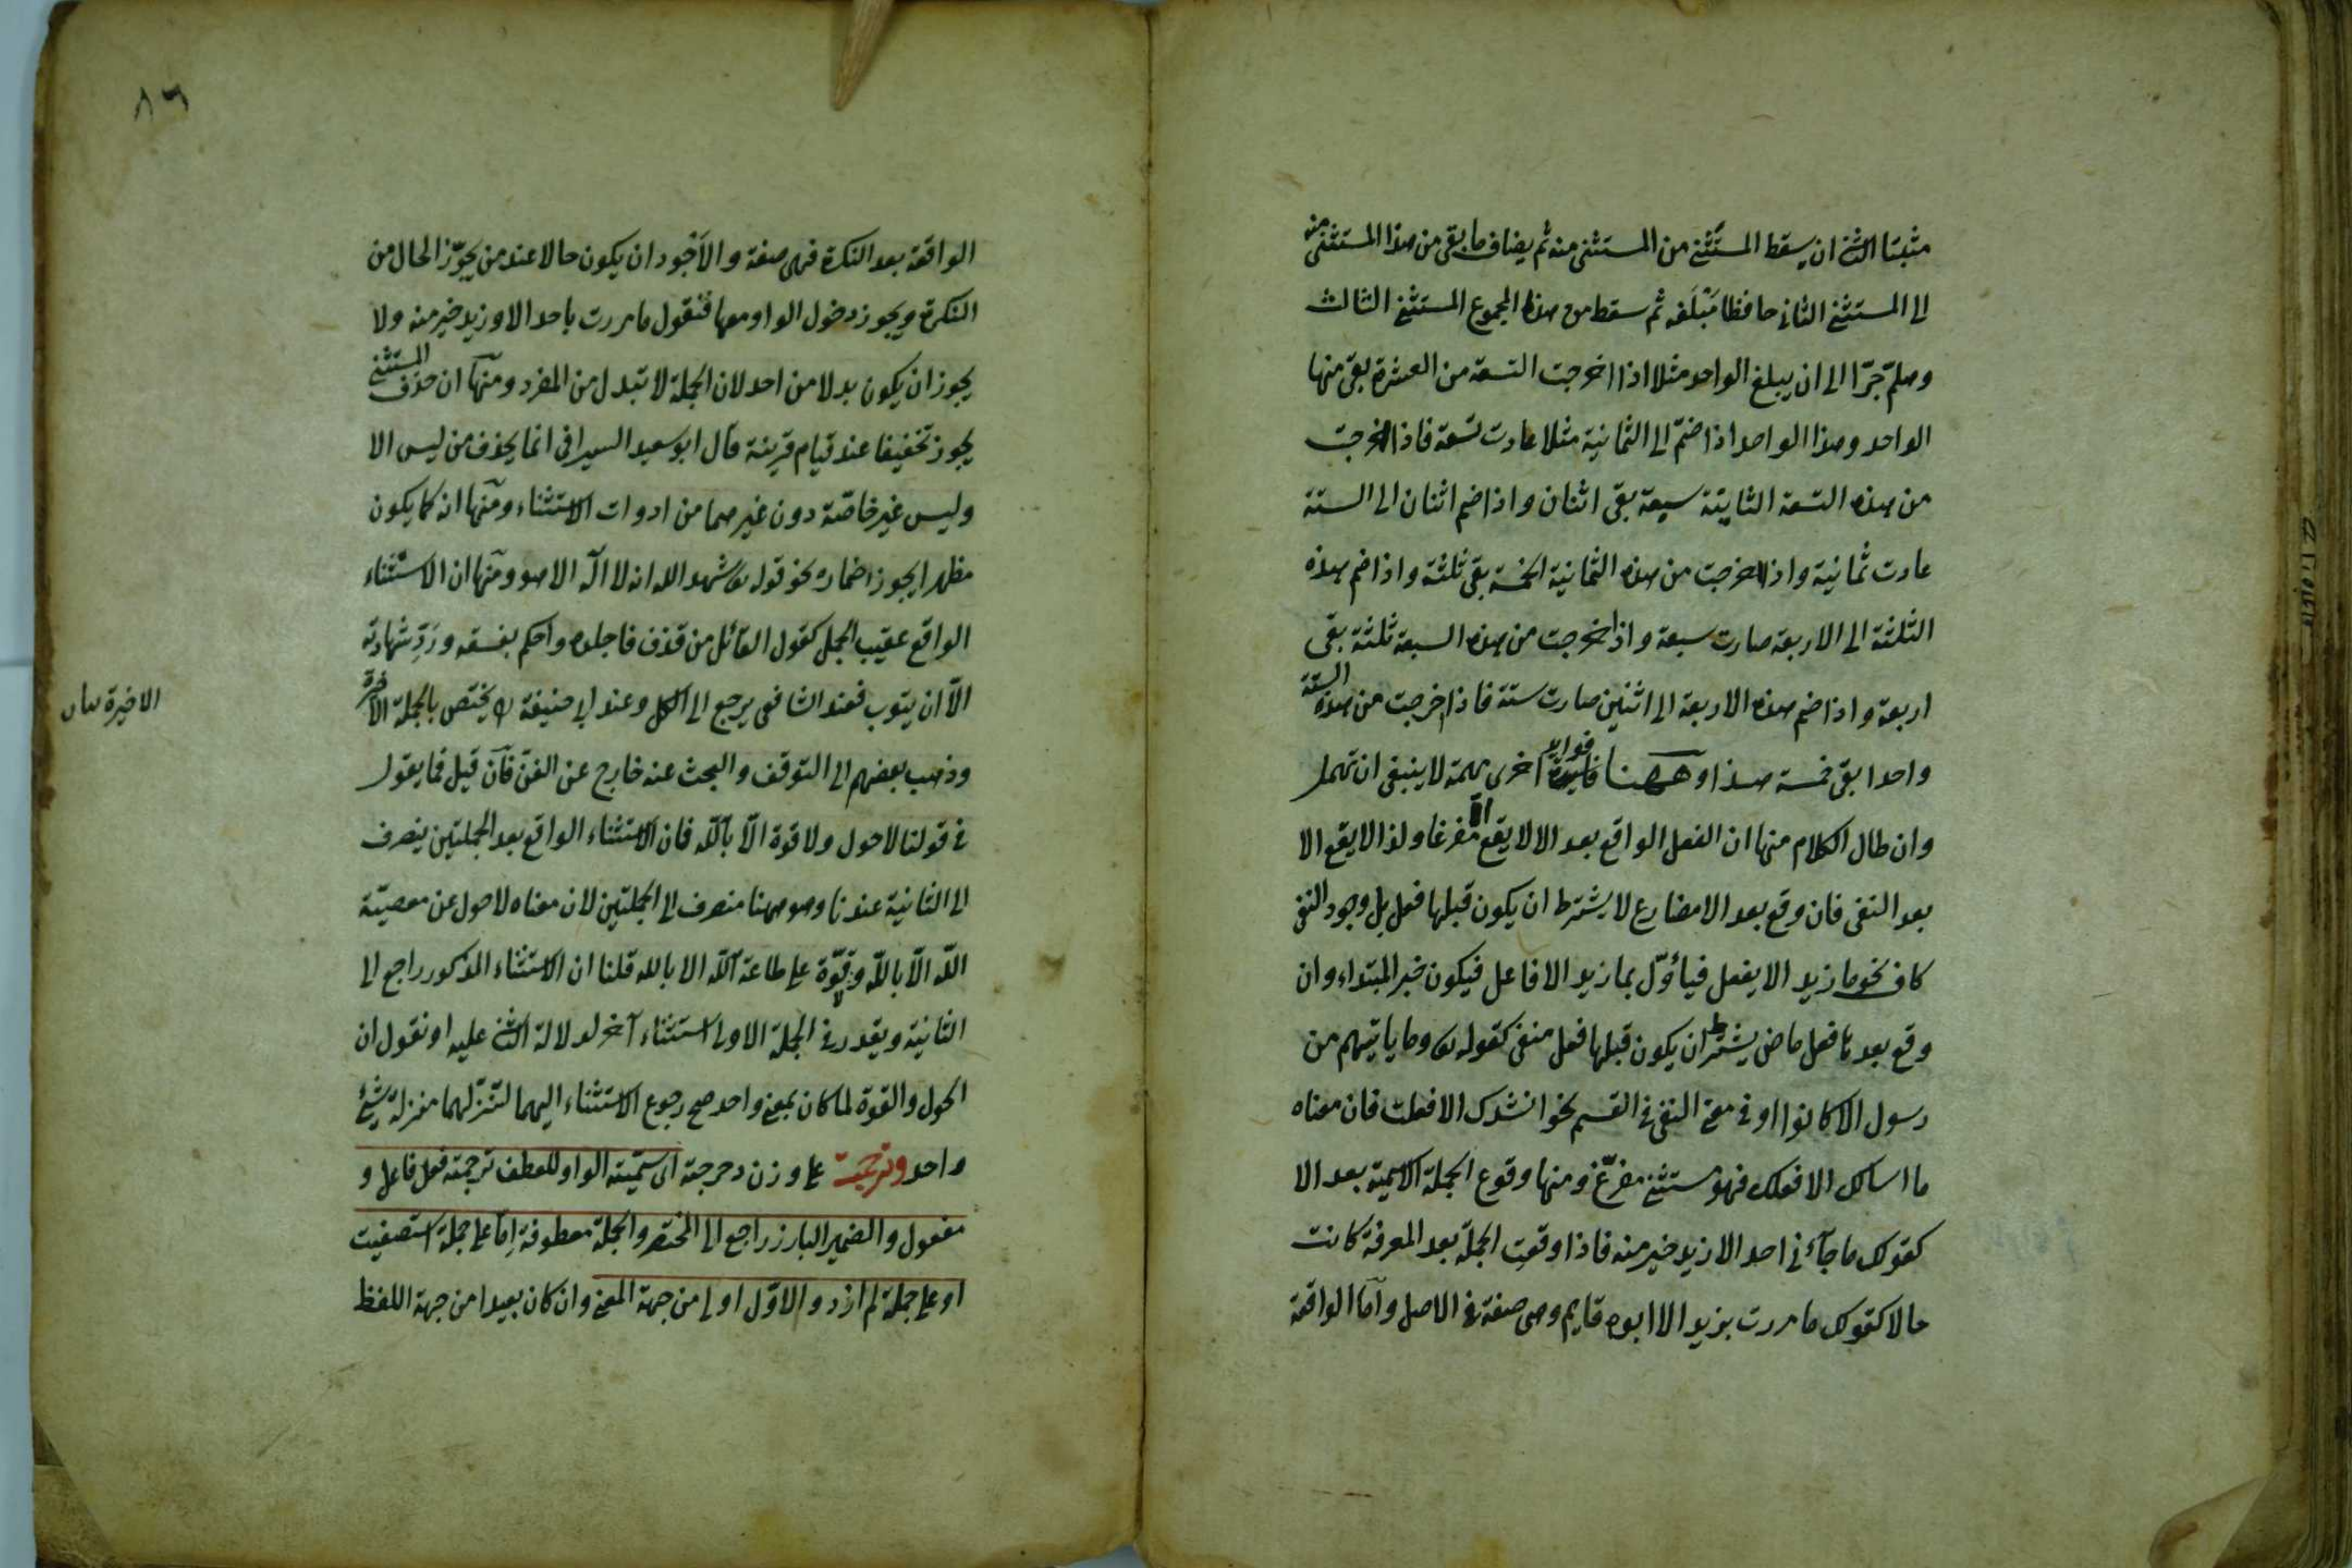 مثبتا الثنى ان يسقط المستثنى من المستثنى منه ثم يضاف ما بقى من هذا المستثنى منه
الى المستثنى الثانى حافظا مبلغه ثم سقط من هذا المجموع المستثنى الثالث
وهلم جرّا الى ان يبلغ الواحد مثلا اذا اخرجت التسعة من العشرة بقى منها
الواحد وهذا الواحد اذا ضمّ الى الثمانية مثلا عادت تسعة فاذا اخرجت
من هذه التسعة الثانية سبعة بقى اثنان واذا ضم اثنان الى الستة
عادت ثمانية واذا اخرجت من هذه الثمانية الخمسة بقى ثلثة واذا ضم هذه
الثلثة الى الاربعة صارت سبعة واذا اخرجت من هذه السبعة ثلثة بقى
اربعة واذا ضم هذه الاربعة الى اثنين صارت ستة فاذا اخرجت من هذه الستة
واحدا بقى خمسة هذا وههنا فوايد اخرى مهمة لا ينبغى ان تهمل
وان طال الكلام منها ان الفعل الواقع بعد الا لا يقع الا مفرغا ولذا لا يقع الا
بعد النفى فان وقع بعد الا مضارع لا يشترط ان يكون قبلها فعل بل وجود النفى
كاف نحو ما زيد الا يفعل فيأوّل بما زيد الا فاعل فيكون خبر المبتداء وان
وقع بعدها فعل ماضى يشترط ان يكون قبلها فعل منفى كقوله تع وما ياتيهم من
رسول الا كانوا او فى معنى النفى فى القسم نحو انشدك الا فعلت فان معناه
ما اسالك الا فعلك فهو مستثنى مفرّغ ومنها وقوع الجملة الاسمية بعد الا
كقولك ما جآءنى احد الا زيد خير منه فاذا وقعت الجملة بعد المعرفة كانت
حالا كقولك ما مررت بزيد الا ابوه قايم وهى صفة فى الاصل وآما الواقعة
٨٦
الواقعة بعد النكرة فهى صفة والاجود ان يكون حالا عند من يجوّز الحال من
النكرة ويجوز دخول الواو معها فنقول ما مررت باحد الا وزيد خير منه ولا
يجوز ان يكون بدلا من احد لان الجملة لا تبدل من المفرد ومنها ان حذف المستثنى
يجوز تخفيفا عند قيام قرينة قال ابو سعيد السيرافى انما يحذف من ليس الا
وليس غير خاصّة دون غيرهما من ادوات الاستثناء ومنها انه كما يكون
مظهرا يجوز اضماره نحو قوله تع شهد الله انه لا اله الا هو ومنها ان الاستثناء
الواقع عقيب الجمل كقول القائل من قذف فاجلده واحكم بفسقه وردّ شهادته
الّا ان يتوب فعند الشافعى يرجع الى الكل وعند ابى حنيفة يختص بالجملة الاخيرة
الاخيرة بيان
وذهب بعضهم الى التوقف والبحث عنه خارج عن الفن فآن قيل فما يقول
فى قولنا لا حول ولا قوة الّا بالله فان الاستثناء الواقع بعد الجملتين ينصرف
الى الثانية عندنا وهو ههنا منصرف الى الجملتين لان معناه لا حول عن معصيّة
الله الّا بالله ولا قوّة على طاعة الله الا بالله قلنا ان الاستثناء المذكور راجع الى
الثانية ويقدر فى الجملة الاولى استثناء آخر لدلالة الثنى عليه او نقول ان
الحول والقوة لما كان بمعنى واحد صح رجوع الاستثناء اليهما لتنزّلهما منزلة شئ
واحد وترجمته على وزن دحرجة اى سمّيته الواو للعطف ترجمته فعل فاعل و
مفعول والضمير البارز راجع الى المختصر والجملة معطوفة إمّا على جملة استصفيت
او على جملة لم ازد والاوّل اولى من جهة المعنى وان كان بعيدا من جهة اللفظ